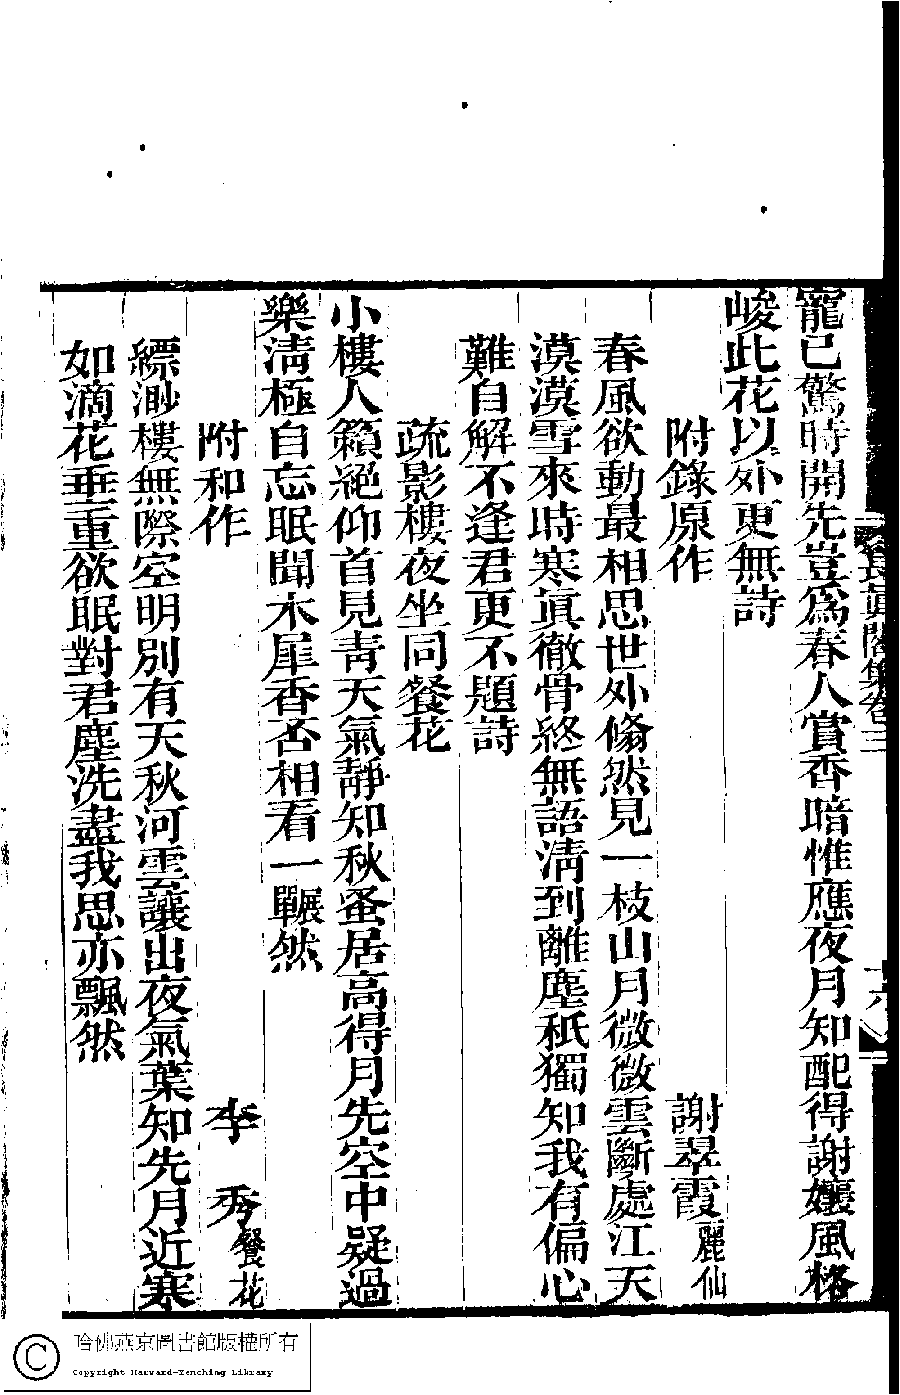 長眞閣集卷三
十六
寵已驚時開先豈爲春人賞香暗惟應夜月知配得謝孃風格
峻此花以外更無詩
附錄原作
謝翠霞麗仙
春風欲動最相思世外翛然見一枝山月微微雲斷處江天
漠漠雪來時寒眞徹骨終無語淸到離塵秖獨知我有偏心
難自解不逢君更不題詩
疏影樓夜坐同餐花
小樓人籟絕仰首見靑天氣靜知秋蚤居高得月先空中疑過
樂淸極自忘眠聞木犀香否相看一囅然
附和作
李秀餐花
縹渺樓無際空明別有天秋河雲讓出夜氣葉知先月近寒
如滴花垂重欲眠對君塵洗盡我思亦飄然
哈佛燕京圖書館版權所有
Copyright Harvard-Yenching Library